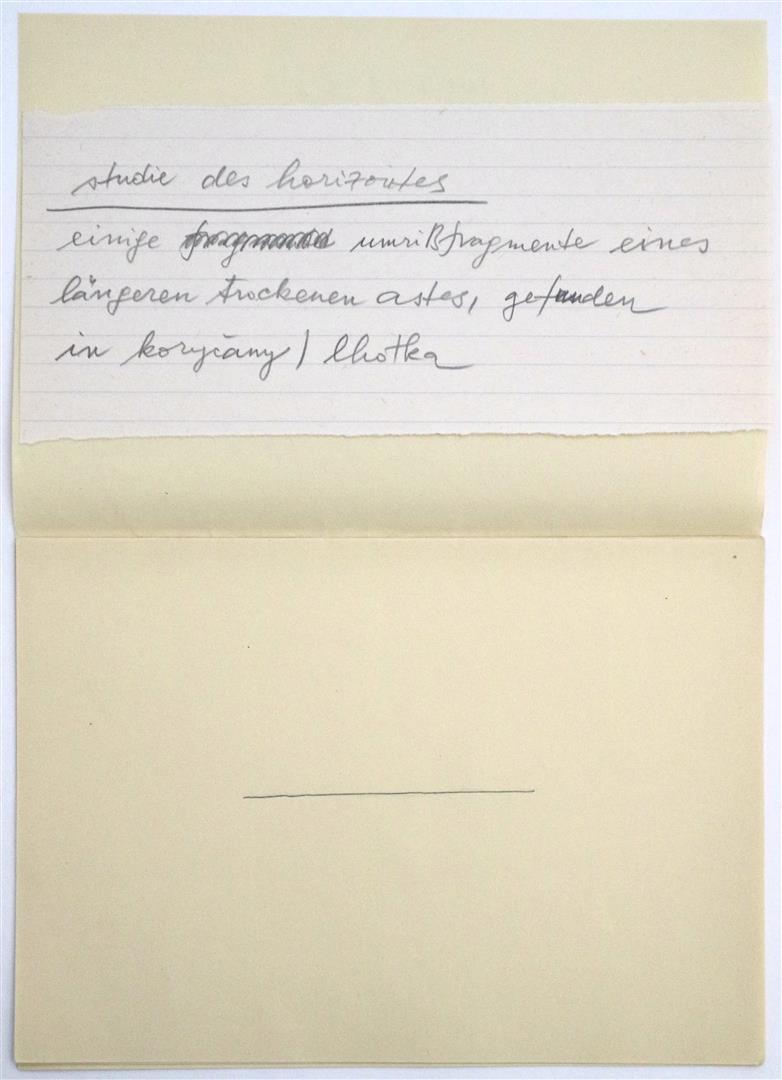 studie des horizontes
einige umrißfragmente eines
längeren trockenen astes, gefunden
in koryčany / lhotka